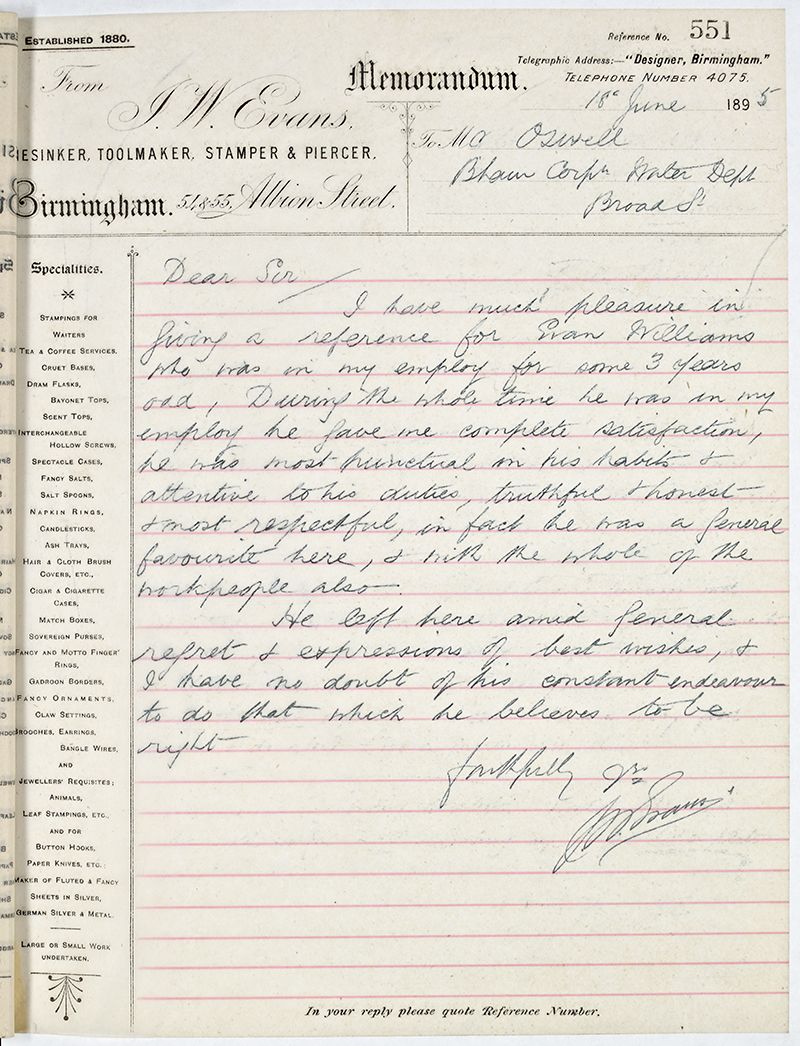 Established 1880.
Reference No. 551
Telegraphic Address:—"Designer, Birmingham."
Telephone Number 4075.
From
Memorandum.
J. W. Evans,
18 June 1895
To Mr Oswell
DIESINKER, TOOLMAKER, STAMPER & PIERCER,
Bham Corpn Water Dept
Birmingham. 54 & 55, Albion Street.
Broad St
Specialities.
Stampings for
Waiters
Tea & Coffee Services,
Cruet Bases,
Dram Flasks,
Bayonet Tops,
Scent Tops,
Interchangeable
Hollow Screws,
Spectacle Cases,
Fancy Salts,
Salt Spoons,
Napkin Rings,
Candlesticks,
Ash Trays,
Hair & Cloth Brush
Covers, etc.,
Cigar & Cigarette
Cases,
Match Boxes,
Sovereign Purses,
Fancy and Motto Finger
Rings,
Gadroon Borders,
Fancy Ornaments,
Claw Settings,
Brooches, Earrings,
Bangle Wires,
and
Jewellers' Requisites;
Animals,
Leaf Stampings, etc.,
and for
Button Hooks,
Paper Knives, etc.;
Maker of Fluted & Fancy
Sheets in Silver,
German Silver & Metal.
Large or Small Work
undertaken.
Dear Sir
I have much pleasure in
giving a reference for Evan Williams
who was in my employ for some 3 years
odd, During the whole time he was in my
employ he gave me complete satisfaction,
he was most punctual in his habits &
attentive to his duties, truthful & honest
& most respectful, in fact he was a general
favourite here, & with the whole of the
workpeople also.
He left here amid general
regret & expressions of best wishes, &
I have no doubt of his constant endeavour
to do that which he believes to be
right
faithfully yrs
J W. Evans
In your reply please quote Reference Number.